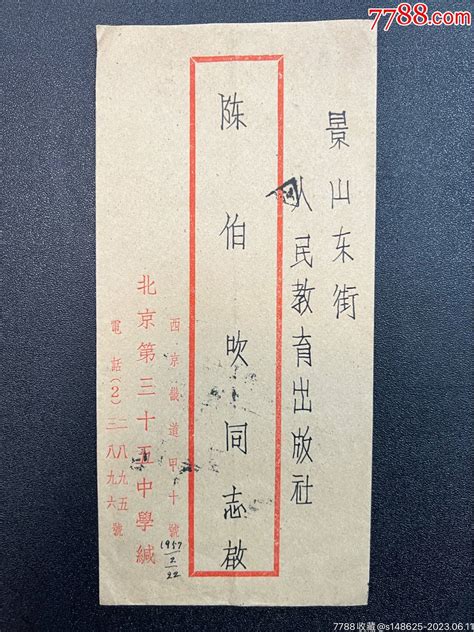 7788.com
景山东街
人民教育出版社
陈伯吹同志啟
西京畿道甲十號
北京第三十五中學緘
電話(2)二八九五
三八九六號
1957
2
22
7788收藏@s148625-2023.06.11